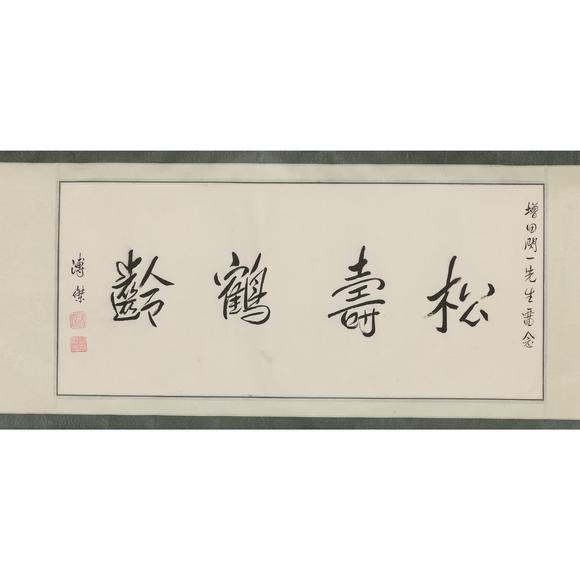 增田関一先生留念
松壽鶴齡
溥傑